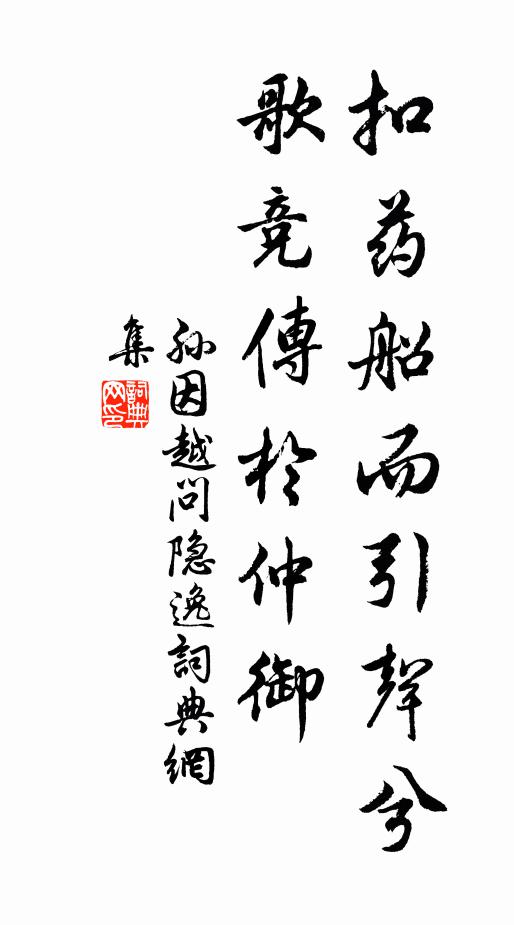 扣药船而引聲兮
歌竞傳於仲御
孙因越问隐逸詞典網
集
詞典网印